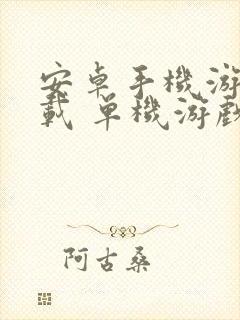 安卓手機游
載 單機游戲
阿古桑